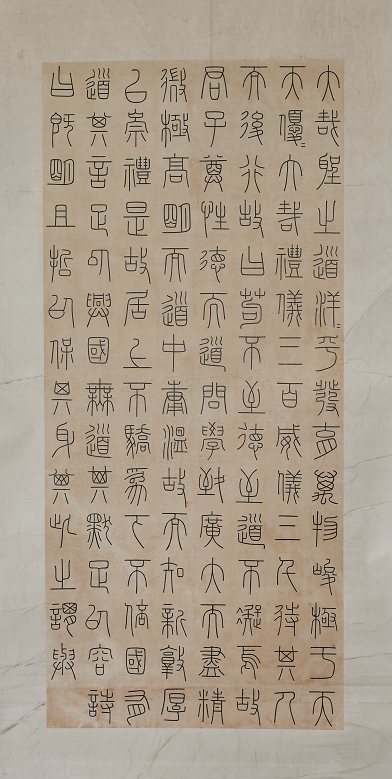 大哉聖之道洋〻乎發育萬物峻極于天
天優〻大哉禮儀三百威儀三千待其人
而後行故曰苟不至德至道不凝焉故
君子尊性德而道問學致廣大而盡精
微極高明而道中庸溫故而知新敦厚
以崇禮是故居上不驕為下不倍國有
道其言足以興國無道其默足以容詩
曰既明且哲以保其身其此之謂與